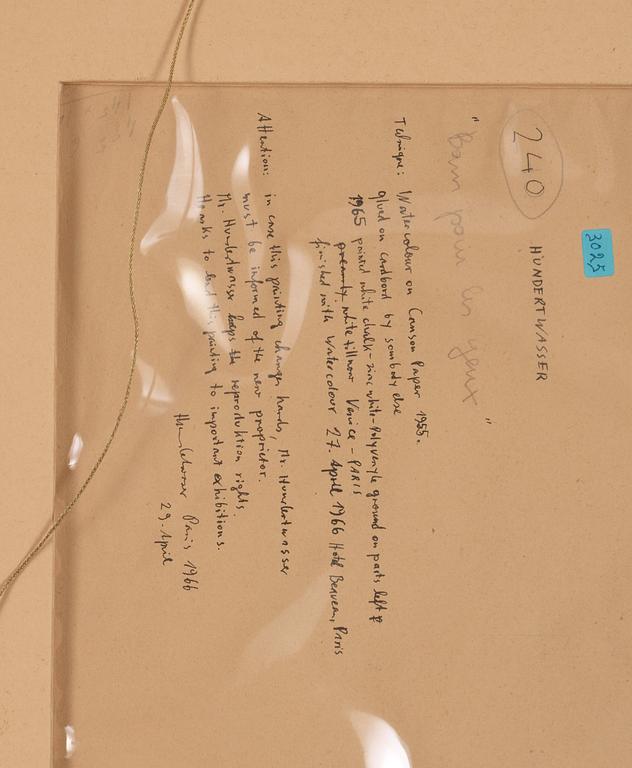 3025
240
HUNDERTWASSER
"Bain pour les yeux"
Technique: Watercolour on Canson Paper 1955.
glued on cardbord by sombody else
1965 painted white chalk-zinc white-Polyvenyle ground on parts left
white tillnow Venice - PARIS
finished with Watercolour 27. April 1966 Hotel Beauveau, Paris
Attention: in case this painting changes hands, Mr. Hundertwasser
must be informed of the new proprietor.
Mr. Hundertwasser keeps the reproduktion rights.
thanks to lend this painting to important exhibitions.
Hundertwasser Paris 1966
29. April